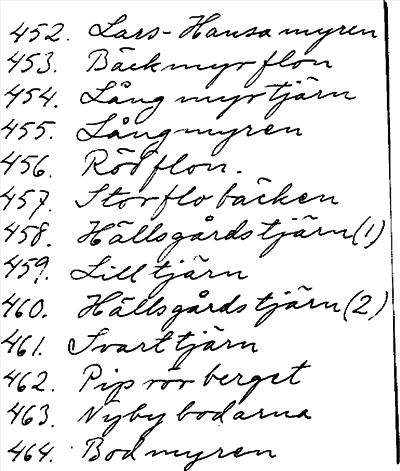 452. Lars-Hansa myren
453. Bäckmyrflon
454. Lång myrtjärn
455. Långmyren
456. Rödflon.
457. Storflobäcken
458. Hällsgårdstjärn (1)
459. Lilltjärn
460. Hällsgårdstjärn (2)
461. Svarttjärn
462. Piprörberget
463. Nybybodarna
464. Bodmyren